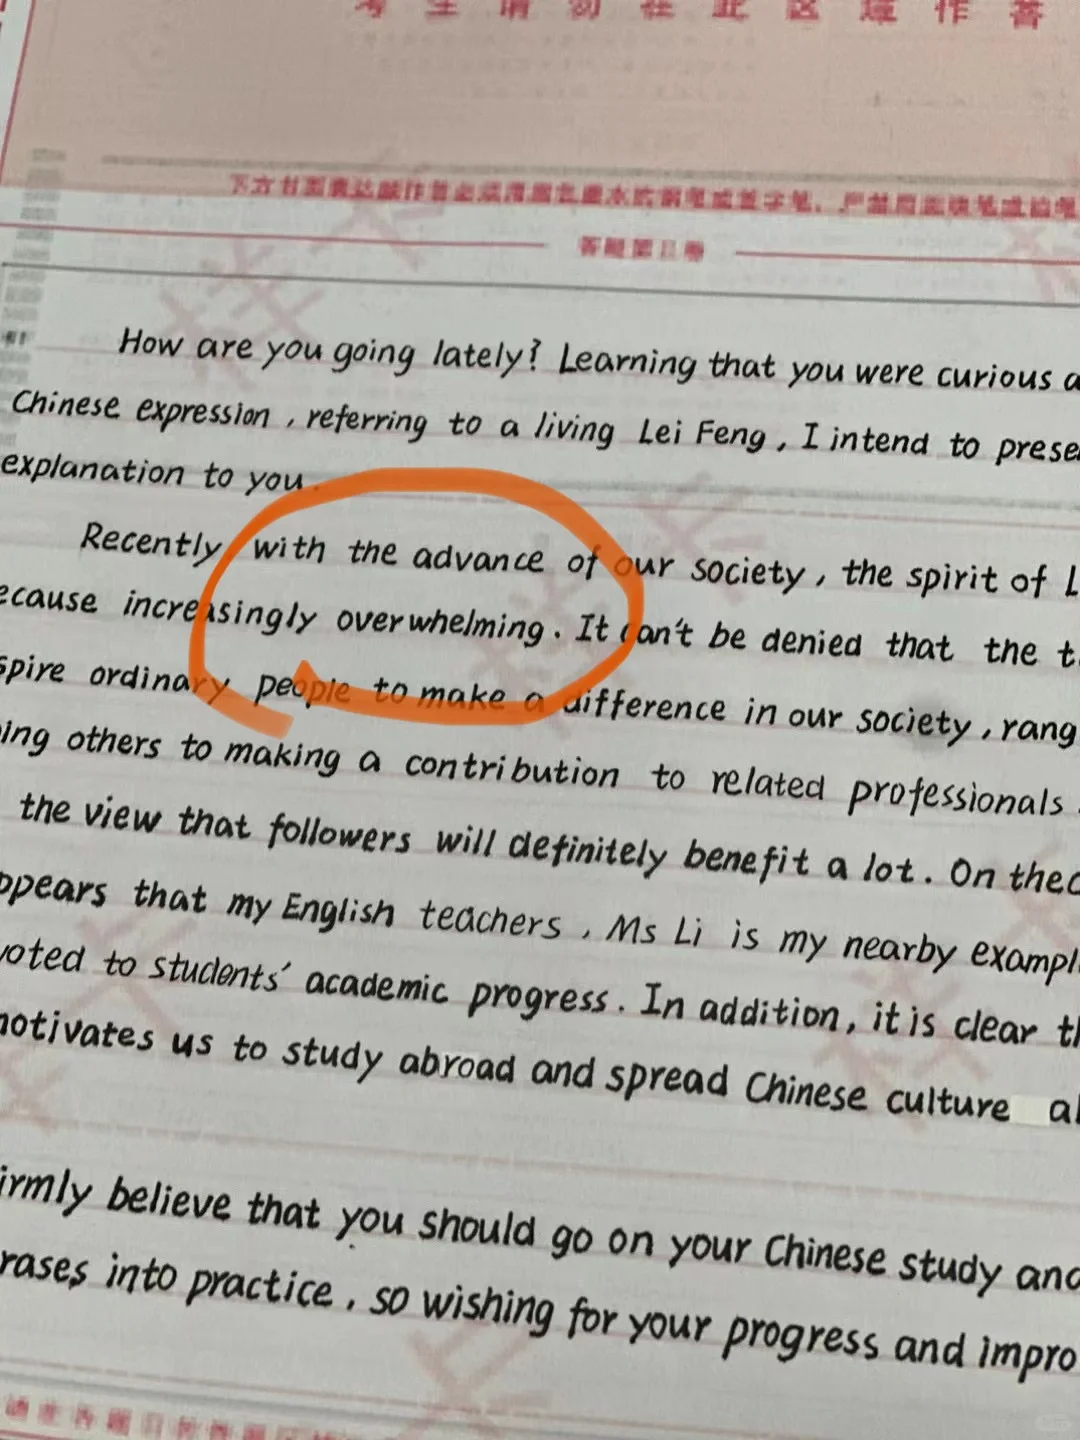 考生请勿在此区域作答
答题第II卷
How are you going lately? Learning that you were curious a
Chinese expression, referring to a living Lei Feng, I intend to prese
explanation to you.
Recently with the advance of our society, the spirit of L
ecause increasingly overwhelming. It can't be denied that the t
spire ordinary people to make a difference in our society, rang
ing others to making a contribution to related professionals.
the view that followers will definitely benefit a lot. On theo
ppears that my English teachers, Ms Li is my nearby exampl
voted to students' academic progress. In addition, it is clear th
notivates us to study abroad and spread Chinese culture al
irmly believe that you should go on your Chinese study and
rases into practice, so wishing for your progress and impro